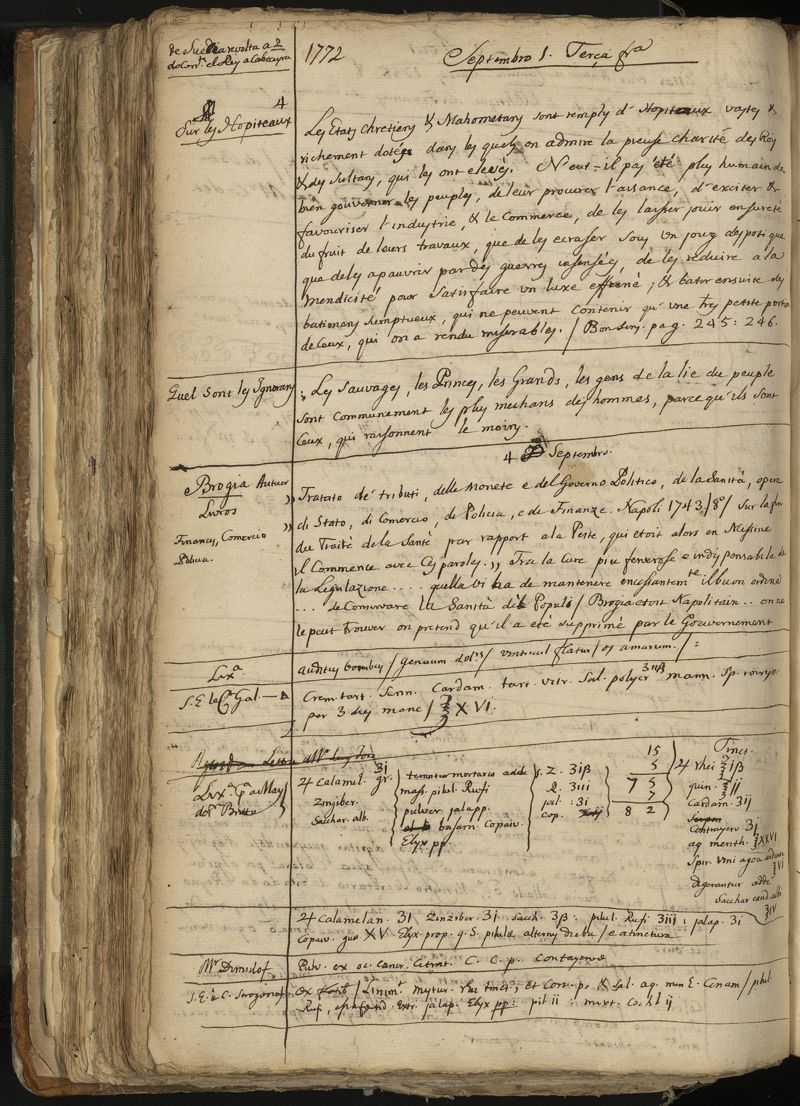 de Suedia revolta a 2
do Corr.te el Rey a Cabeceyra
1772
Septembro 1. Terça fra
4
Sur les Hopiteaux
Les Etats Chretiens & Mahometans sont remply d' Hopiteaux vastes &
richement dotés dans les quels on admire la pieuse charité des Roys
& des Sultans, qui les ont elevés. N'eut-il pas été plus humain de
bien gouverner les peuples, de leur procurer l'aisance, d'exciter &
favouriser l'industrie, & le Commerce, de les laisser jouir en sureté
du fruit de leurs travaux, que de les ecraser sous un joug despotique
que de les apauvrir par des guerres insensées, de les reduire a la
Mendicité pour Satisfaire un luxe effrené; & batir ensuite des
batimens Somptueux, qui ne peuvent contenir qu'une tres petite portion
de Ceux, qui on a rendu miserables. / Bon Sens. pag. 245: 246.
Quel sont les Ignorans
Les Sauvages, les Princes, les Grands, les gens de la lie du peuple
sont communement les plus mechans des hommes, parce qu'ils sont
Ceux, qui raisonnent le moins.
4 Septembro.
Brogia Auteur
Livros
Finances, Comercio
Policia.
Tratato de' tributi, delle Monete e del Governo Politico, de la Sanità, opera
di Stato, di Comercio, de Policia, e de Finanze. Napoli 1743. /8º/ Sur la fin
du Traité de la Santé par rapport a la Peste, qui etoit alors en Messine
il Commence avec Ces paroles. ,, Tra la Cure piu fenerose e indispensabile de
la Legislazione ..... quella vi ha de mantenere encessantem.te il buon ordine
... de Conservare la Sanità del Populi / Brogia etoit Napolitain .. on ne
le peut trouver on pretend qu'il a eté supprimé par le Gouvernement
Lix.a
auditus bombus / genuum dol.s / ventricul flatus / os amarum. / :
S. E. le C. Gal.
Crem. tart. Senn. Cardam. tart. vitr. Sal. polycr ʒiiß mann. Sp.
per 3 dies mane / ʒ XVI.
Lix.a
do.
4 Calamel. gr. ʒi
Zingiber.
Sacchar. alb.
terantur mortario adde
mass. pilul. Rufi
pulver. jalapp.
balsam. Copaiv.
Elyx pp.
Z. ʒiß
R. ʒiii
jal. : ʒi
Cop.
15
5
7 5
7
8 2
Tinct.
4 Rhei ʒiß
quin. ʒij
Cardam. ʒij
Contrayerv ʒi
aq menth. ʒXXVI
Spir. vini
digerantur adde ʒVI
Sacchar cand. alb.
ʒIV
4 Calamelan. ʒi Zinziber. ʒi Sacch. ʒß: pilul. Rufi ʒiij : jalap. ʒi
Copaiv. gutt XV. Elyx. prop. q. S. pilulæ alternis diebus / e a tinctura
Mr Dimidof
Pulv. ex oc. cancr. Citrat. C. C. p. contayerva
S. E. le C. Strogonof
Linim.t Mixtur. rhei tinct; et Cort. p. & Sal. aq. men E. Cinam / pilul.
Rufi, Extr. jalap. Elyx pp: pil ii : mixt. Cochl ij